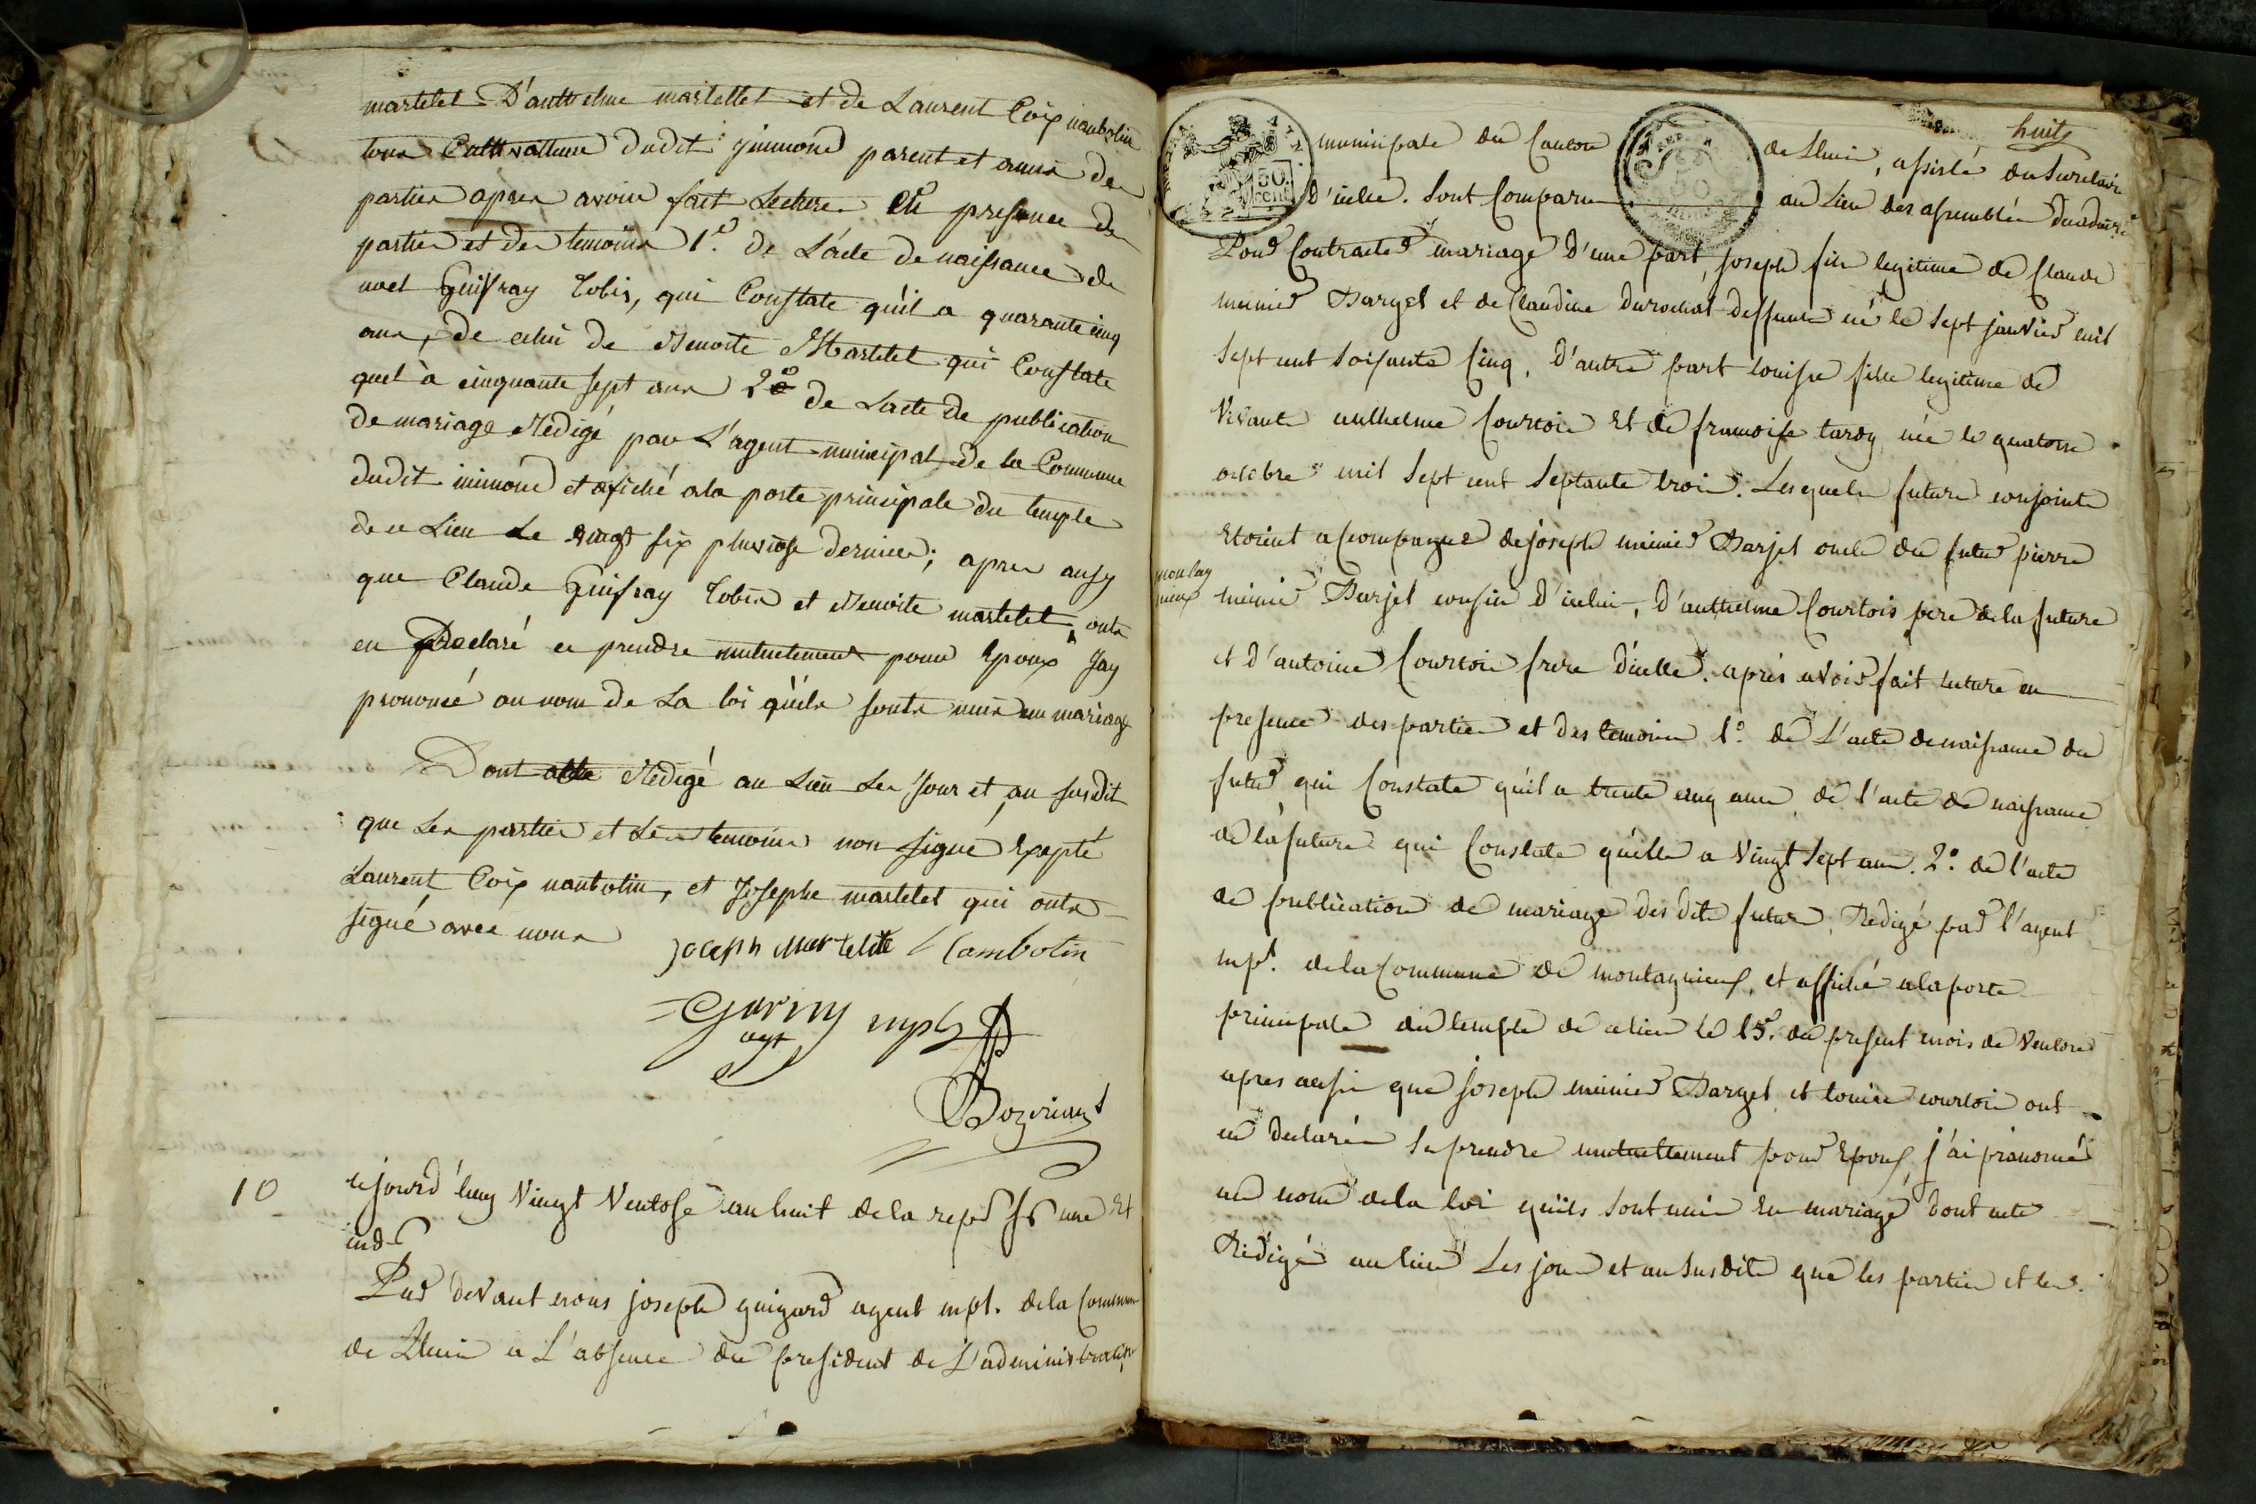 martelet D'anthelme martellet et de Laurent Coix nantolin
tous Cultivatteurs dudit jnnimond parent et amis des
parties apres avoir fait Lecture En presence des
parties et des temoins 1º. de L'acte de naissance de
noel Guifray Tobis, qui Constate qu'il a quarante cinq
ans, de celui de Benoite Martelet qui Constate
quel à cinquante sept ans 2º de Lacte de publication
de mariage Redigé par L'agent municipal de la Commune
dudit inimond et afiché ala porte principale du temple
de ce Lieu Le vingt six pluviose dernier; apres ausy
que Claude Guifray Tobis et Benoite martelet onts
en Declaré ce prendre mutuelement pour Epoux Jay
prononcé au nom de La loi qu'ils sonts unis en mariage
Dont acte Redigé au Lieu Les Jour et an susdit
que Les parties et Les temoins non signé Exepté
Laurent Coix nantolin, et Josephe martelet qui onts
signé avec nous
joseph martelet Nambotin
Guriny
agt mpl
Bozerian
10
cejourd'huy Vingt Ventose an huit de la repu fse une Et
ind
Par devant nous joseph guigard agent mpl. dela Commune
de Lhuis a L'absence du president de L'administration
huit
municipale du Canton de Lhuis, assisté du Secretaire
d'icelle. Sont Comparu au Lieu des assemblée
50
cent
Pour Contracter mariage D'une part, joseph fils legitime de Claude
munier Barjel et de Claudine Durochat deffunts né le sept janvier mil
sept cent soisante Cinq, D'autre part Louise fille legitime de
Vivant anthelme Courtois Et de francoise tardy née le quatorse
octobre mil Sept cent Septante trois. Lesquels futurs conjoints
Etoient acompagné de joseph munier Barjel oncle du futur pierre
montag
nieux
munier Barjel cousin d'icelui, D'anthelme Courtois pere dela future
et d'antoine Courtois frere d'icelle. après avoir fait lecture en
presence des parties et des temoins 1º. de L'acte de naissance du
futur qui Constate qu'il a trente cinq ans, de l'acte de naissance
de la future qui Constate qu'elle a Vingt Sept ans. 2º. de l'acte
de publication de mariage des dits futurs, Redigé par l'agent
mpl. dela Commune de montagnieux, et affiché a la porte
principale du temple de celieu le 15. du present mois de Ventose
apres aussi que joseph munier Barjel et Louise courtois ont
eu declarés se prendre mutuellement pour Epoux, j'ai prononcé
au nom dela loi qu'ils sont unis En mariage Dont acte
Redigé au lieu Les jour et an Susdits que les parties et les